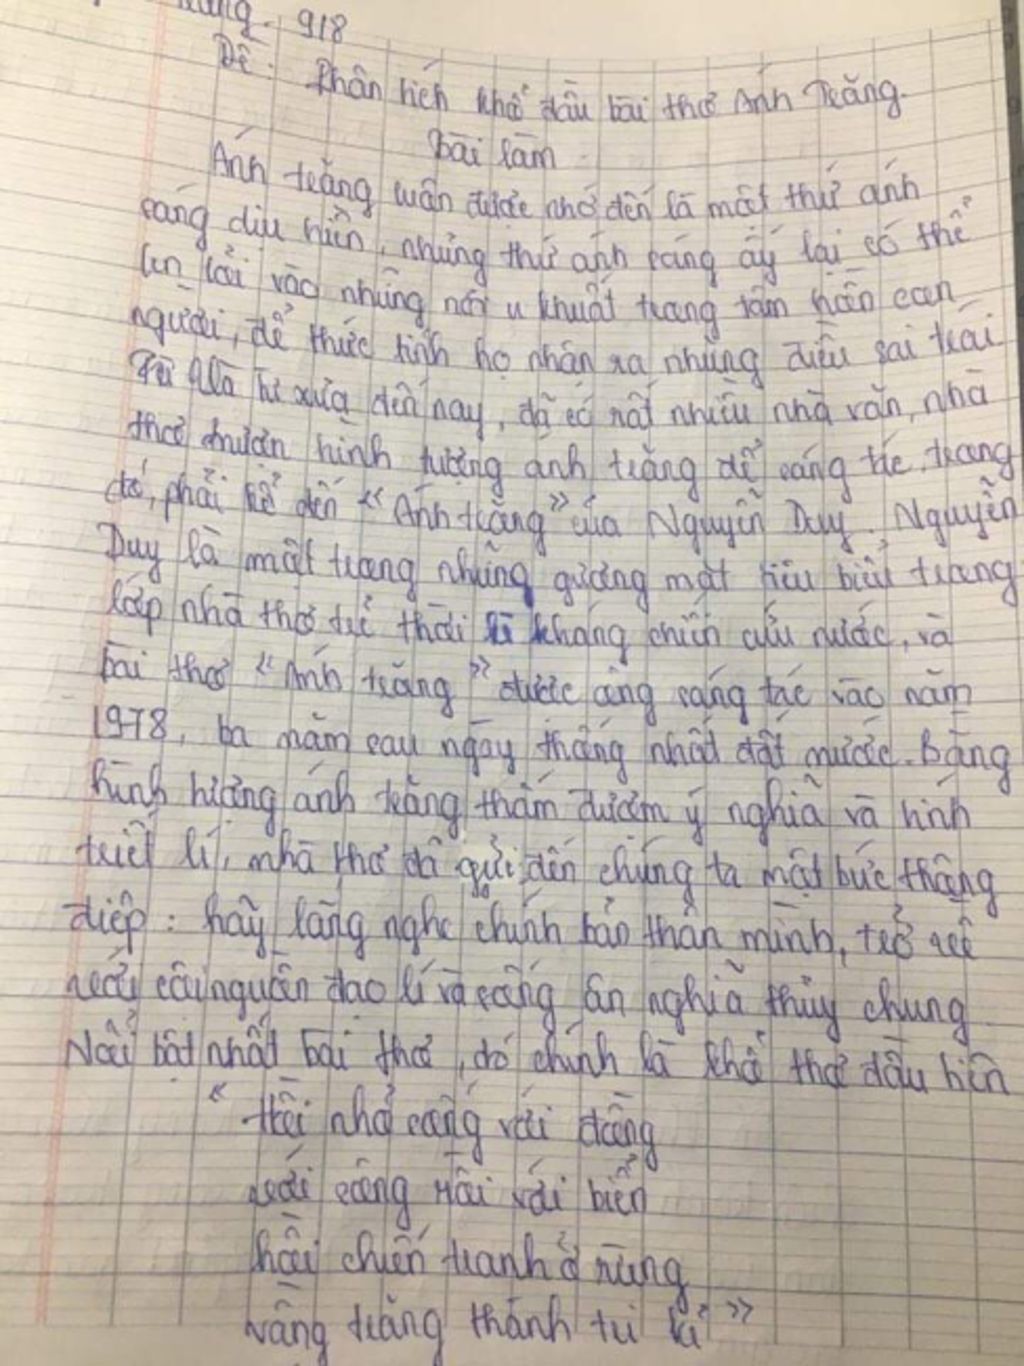 918
Đề: Phân tích khổ đầu bài thơ Ánh Trăng.
Bài làm
Ánh trăng luôn được nhớ đến là một thứ ánh
sáng dịu hiền, nhưng thứ ánh sáng ấy lại có thể
len lỏi vào những nơi u khuất trong tâm hồn con
người, để thức tỉnh họ nhận ra những điều sai trái
Từ xưa đến nay, đã có rất nhiều nhà văn, nhà
thơ mượn hình tượng ánh trăng để sáng tác, trong
đó, phải kể đến "Ánh trăng" của Nguyễn Duy. Nguyễn
Duy là một trong những gương mặt tiêu biểu trong
lớp nhà thơ trẻ thời kì kháng chiến cứu nước, và
bài thơ "Ánh trăng" được ông sáng tác vào năm
1978, ba năm sau ngày thống nhất đất nước. Bằng
hình tượng ánh trăng thấm đượm ý nghĩa và tính
triết lí, nhà thơ đã gửi đến chúng ta một bức thông
điệp: hãy lắng nghe chính bản thân mình, trở về
với cội nguồn đạo lí và sống ân nghĩa thủy chung
Nổi bật nhất bài thơ, đó chính là khổ thơ đầu tiên
"Hồi nhỏ sống với đồng
với sông rồi với biển
hồi chiến tranh ở rừng
vầng trăng thành tri kỉ"